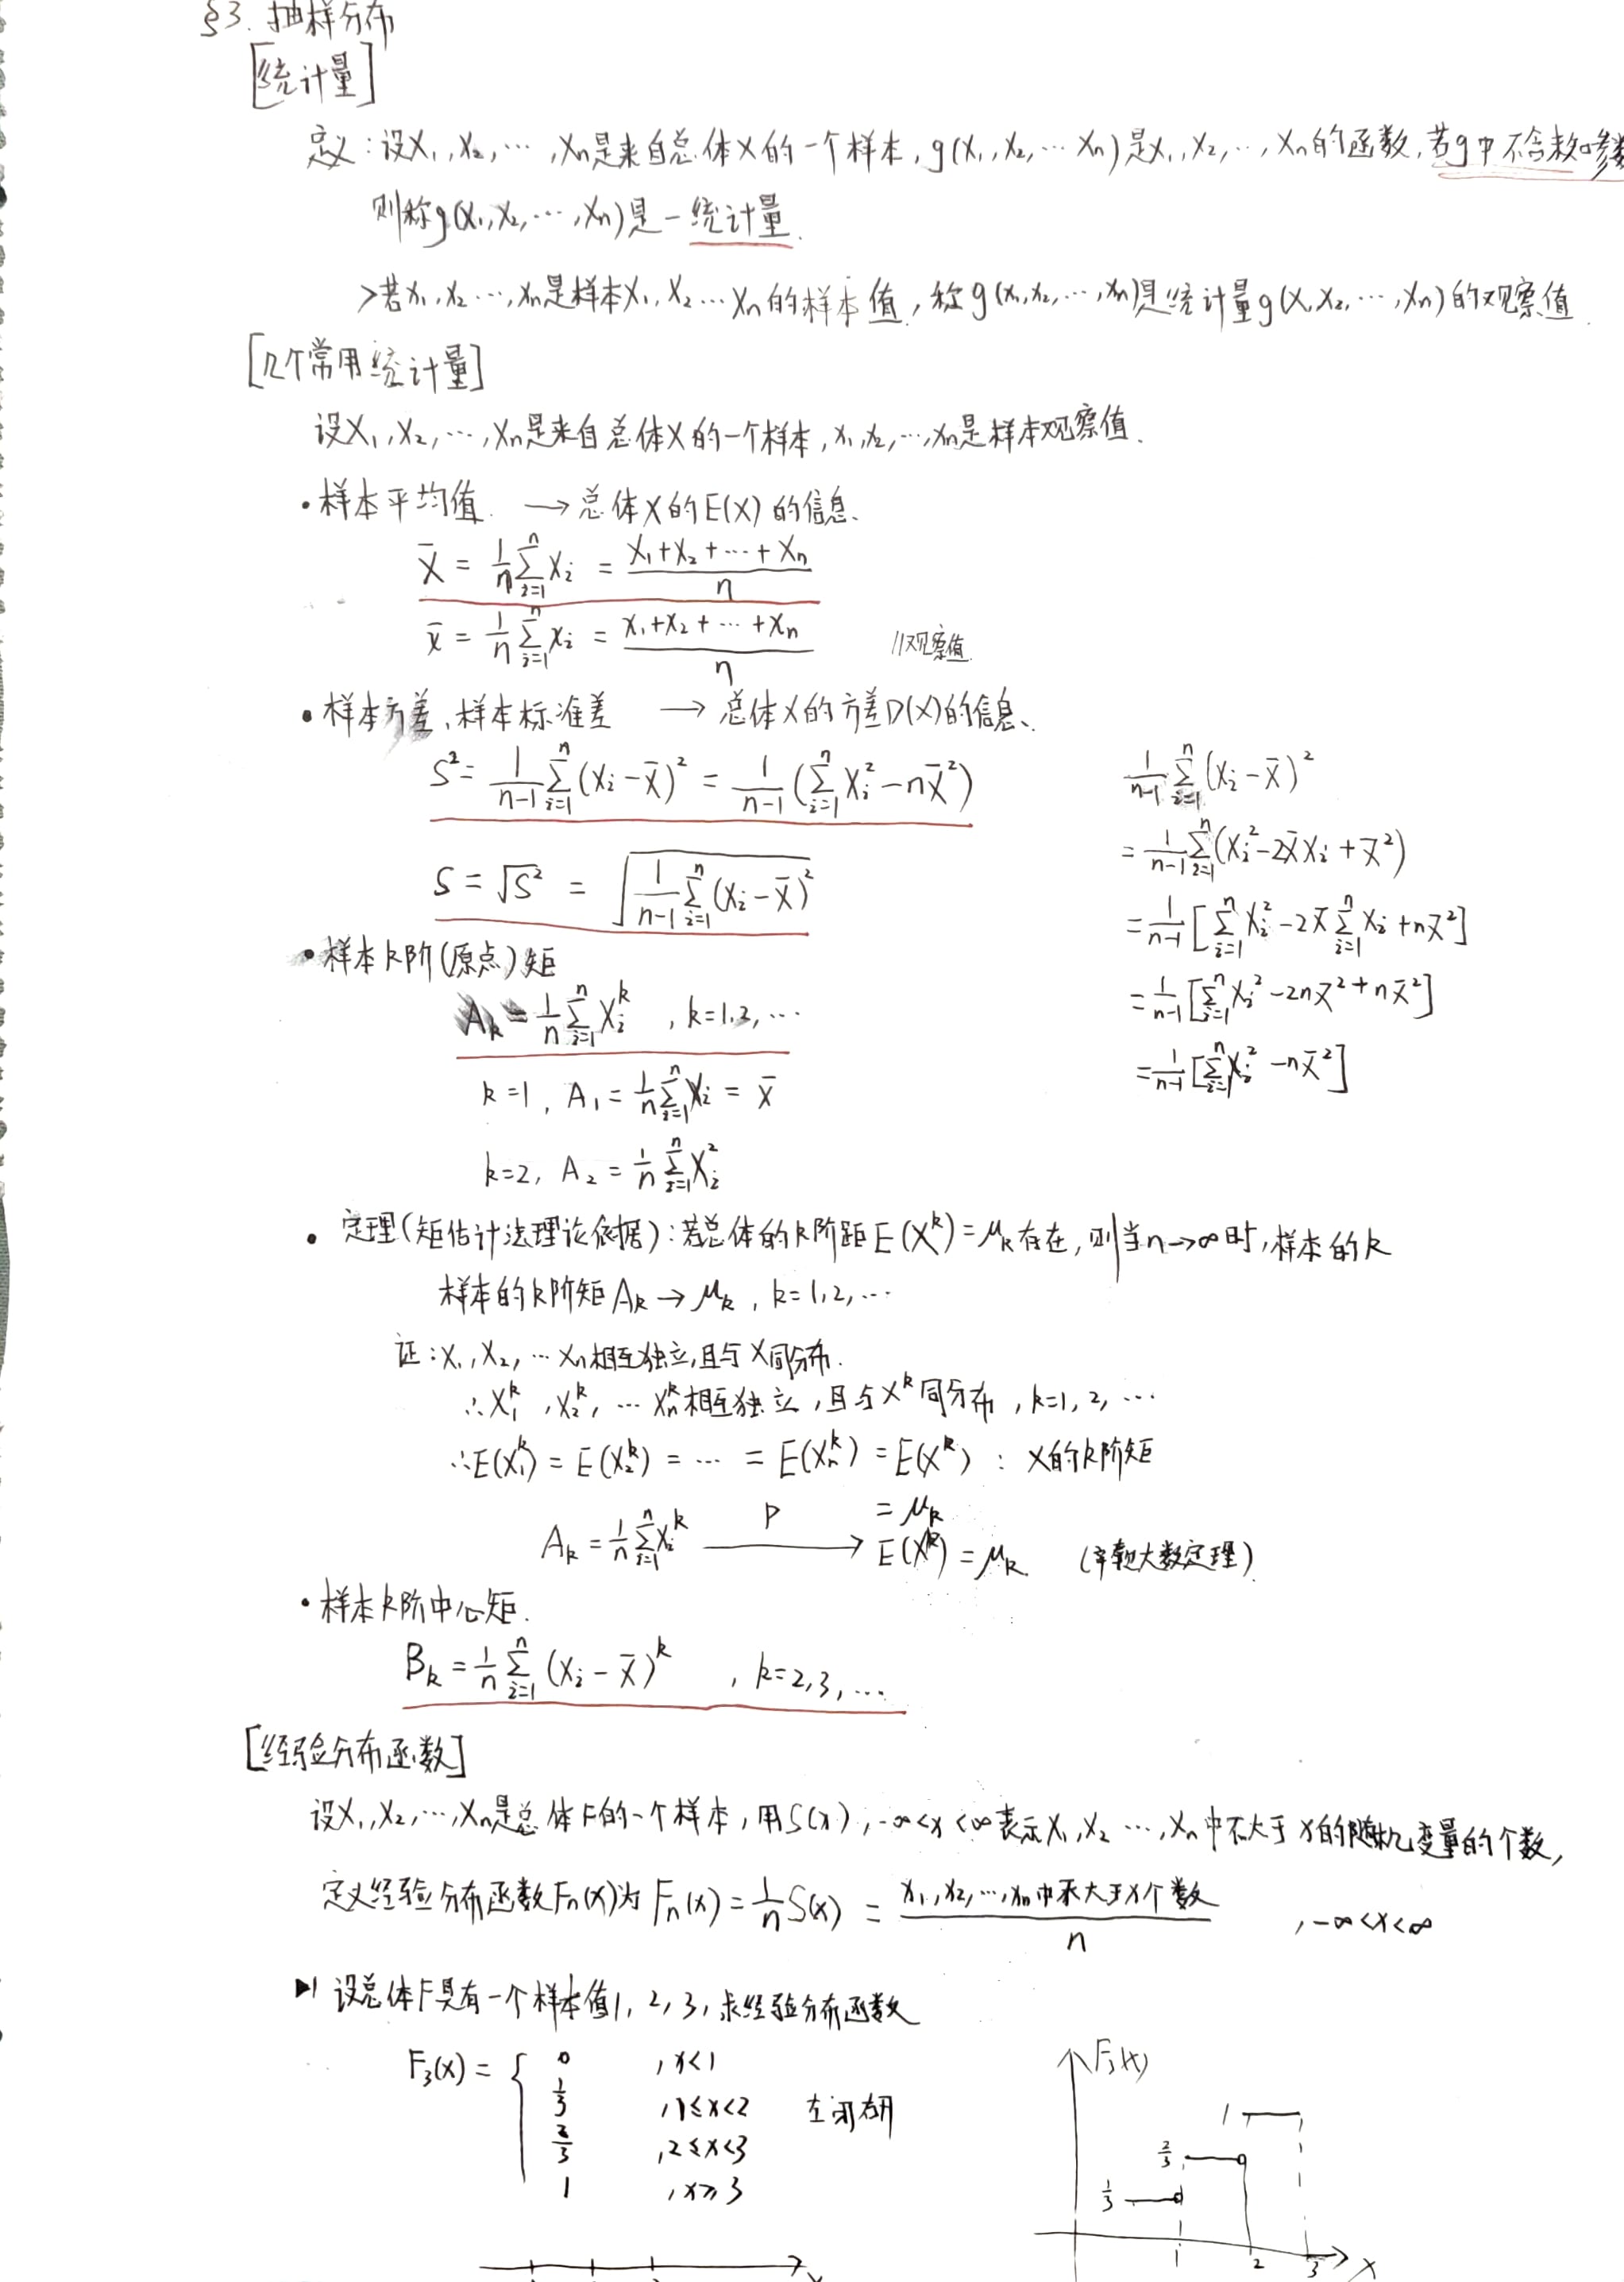 §3. 抽样分布
[统计量]
定义:设X₁,X₂,…,Xn是来自总体X的一个样本,g(X₁,X₂,…Xn)是X₁,X₂,…,Xn的函数,若g中不含未知参数
则称g(X₁,X₂,…,Xn)是一统计量.
>若x₁,x₂…,xn是样本X₁,X₂…Xn的样本值,称g(x₁,x₂,…,xn)是统计量g(X,X₂,…,Xn)的观察值.
[几个常用统计量]
设X₁,X₂,…,Xn是来自总体X的一个样本,x₁,x₂,…,xn是样本观察值.
·样本平均值. → 总体X的E(X)的信息.
X̄ = 1/n ∑_{i=1}^{n} Xi = (X₁+X₂+…+Xn)/n
x̄ = 1/n ∑_{i=1}^{n} xi = (x₁+x₂+…+xn)/n //观察值.
·样本方差,样本标准差 → 总体X的方差D(X)的信息.
S² = 1/(n-1) ∑_{i=1}^{n} (Xi-X̄)² = 1/(n-1) (∑_{i=1}^{n} Xi² - nX̄²)
S = √S² = √(1/(n-1) ∑_{i=1}^{n} (Xi-X̄)²)
1/(n-1) ∑_{i=1}^{n} (Xi-X̄)²
= 1/(n-1) ∑_{i=1}^{n} (Xi²-2X̄Xi+X̄²)
= 1/(n-1) [∑_{i=1}^{n} Xi² - 2X̄ ∑_{i=1}^{n} Xi + nX̄²]
= 1/(n-1) [∑_{i=1}^{n} Xi² - 2nX̄² + nX̄²]
= 1/(n-1) [∑_{i=1}^{n} Xi² - nX̄²]
·样本k阶(原点)矩
Ak = 1/n ∑_{i=1}^{n} Xi^k , k=1,2,…
k=1, A₁ = 1/n ∑_{i=1}^{n} Xi = X̄
k=2, A₂ = 1/n ∑_{i=1}^{n} Xi²
·定理(矩估计法理论依据):若总体的k阶距E(X^k)=μk存在,则当n→∞时,样本的k
样本的k阶矩Ak→μk, k=1,2,…
证:X₁,X₂,…Xn相互独立,且与X同分布.
∴X₁^k,X₂^k,…Xn^k相互独立,且与X^k同分布,k=1,2,…
∴E(X₁^k)=E(X₂^k)=…=E(Xn^k)=E(X^k): X的k阶矩
=μk
Ak = 1/n ∑_{i=1}^{n} Xi^k —P→ E(X^k)=μk (辛钦大数定理)
·样本k阶中心矩.
Bk = 1/n ∑_{i=1}^{n} (Xi-X̄)^k , k=2,3,…
[经验分布函数]
设X₁,X₂,…,Xn是总体F的一个样本,用S(x),-∞<x<∞表示X₁,X₂…,Xn中不大于x的随机变量的个数,
定义经验分布函数Fn(x)为 Fn(x) = 1/n S(x) = (x₁,x₂,…,xn中不大于x个数)/n ,-∞<x<∞
▶1 设总体F具有一个样本值1,2,3,求经验分布函数
F₃(x) = {
0 ,x<1
1/3 ,1≤x<2 左闭右开
2/3 ,2≤x<3
1 ,x≥3
F₃(x)
1
2/3
1/3
1 2 3 X